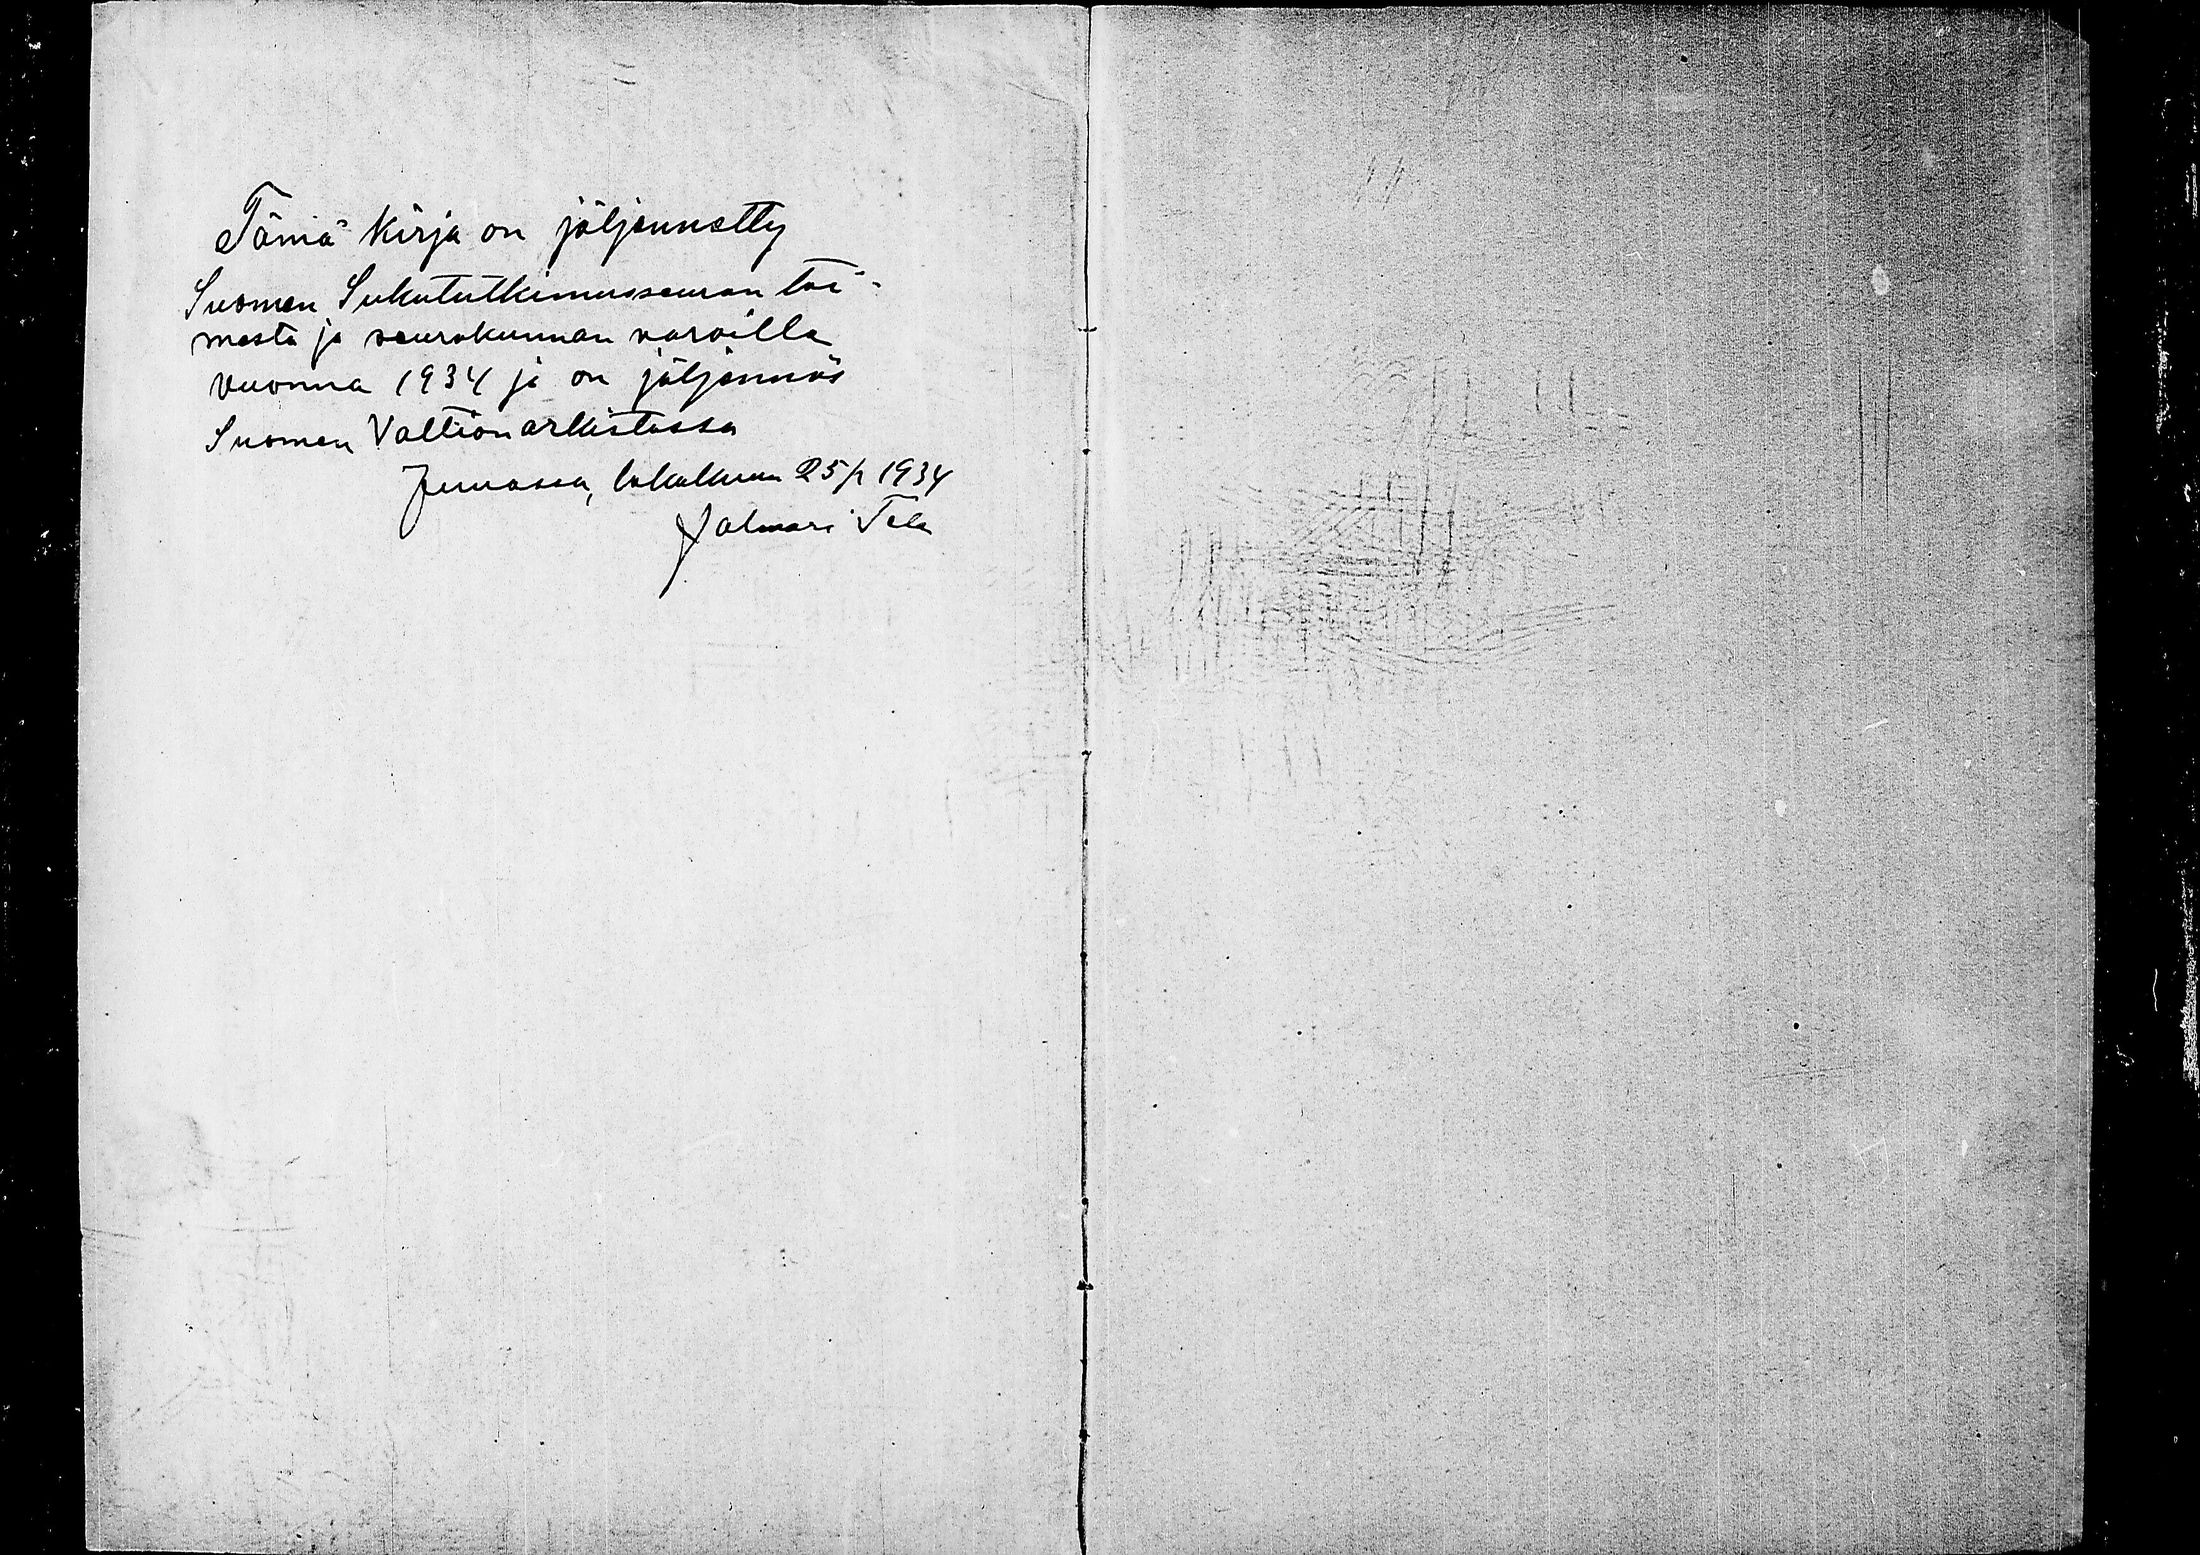 Tämä kirja on jäljennetty
Suomen Sukututkimusseuran toi-
mesta ja seurakunnan varoilla
vuonna 1934 ja on jäljennös
Suomen Valtionarkistossa
Juuassa, lokakuun 25 p 1934
Jalmari Tela